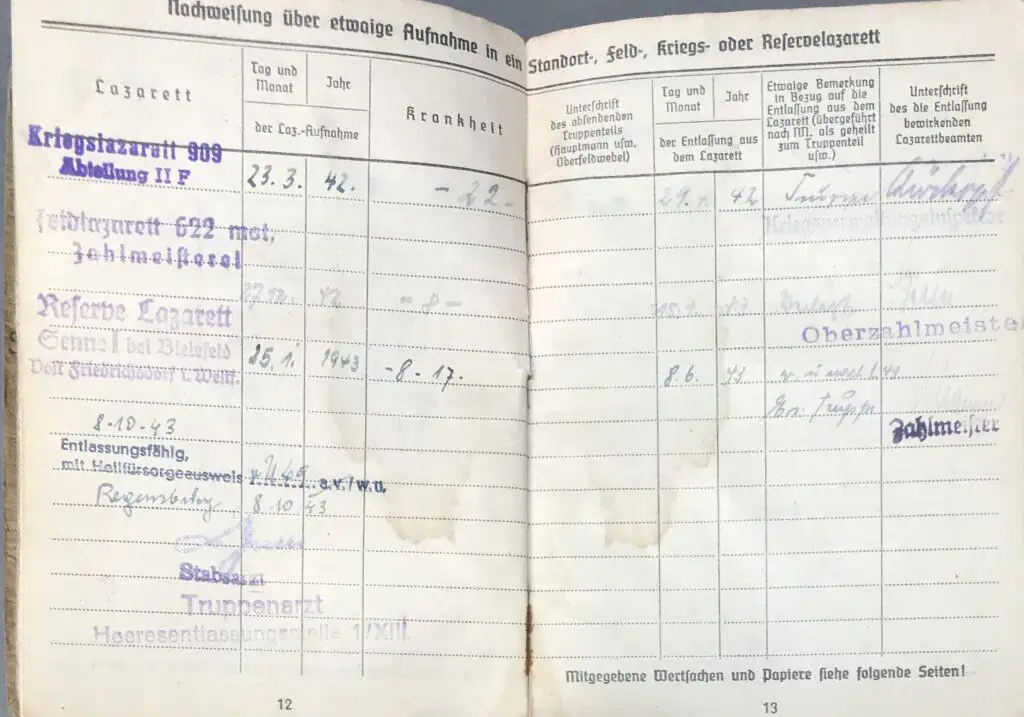 Nachweisung über etwaige Aufnahme in ein Standort-, Feld-, Kriegs- oder Reservelazarett
Lazarett
Tag und Monat
Jahr
der Laz.-Aufnahme
Krankheit
Unterschrift
des absendenden
Truppenteils
(Hauptmann usw.
Oberfeldwebel)
Tag und
Monat
Jahr
der Entlassung aus
dem Lazarett
Etwaige Bemerkung
in Bezug auf die
Entlassung aus dem
Lazarett (übergeführt
nach NN. als geheilt
zum Truppenteil
usw.)
Unterschrift
des die Entlassung
bewirkenden
Lazarettbeamten
Kriegslazarett 909
Abteilung II F
23.3. 42. - 22 - 29. 42
Kriegsverwaltungsinspektor
Feldlazarett 622 mot.
Zahlmeisterei
27.12. 42 - 8 - 15.1. 43
Oberzahlmeister
Reserve Lazarett
Senne I bei Bielefeld
Post Friedrichsdorf i. Westf.
25.1. 1943 - 8 - 17. 8.6. 43
Ers. Truppe
Zahlmeister
8-10-43
Entlassungsfähig,
mit Heilfürsorgeausweis a.v./w.u.
Regensburg 8.10.43
Stabsarzt
Truppenarzt
Heeresentlassungsstelle 1/XIII
Mitgegebene Wertsachen und Papiere siehe folgende Seiten!
12
13